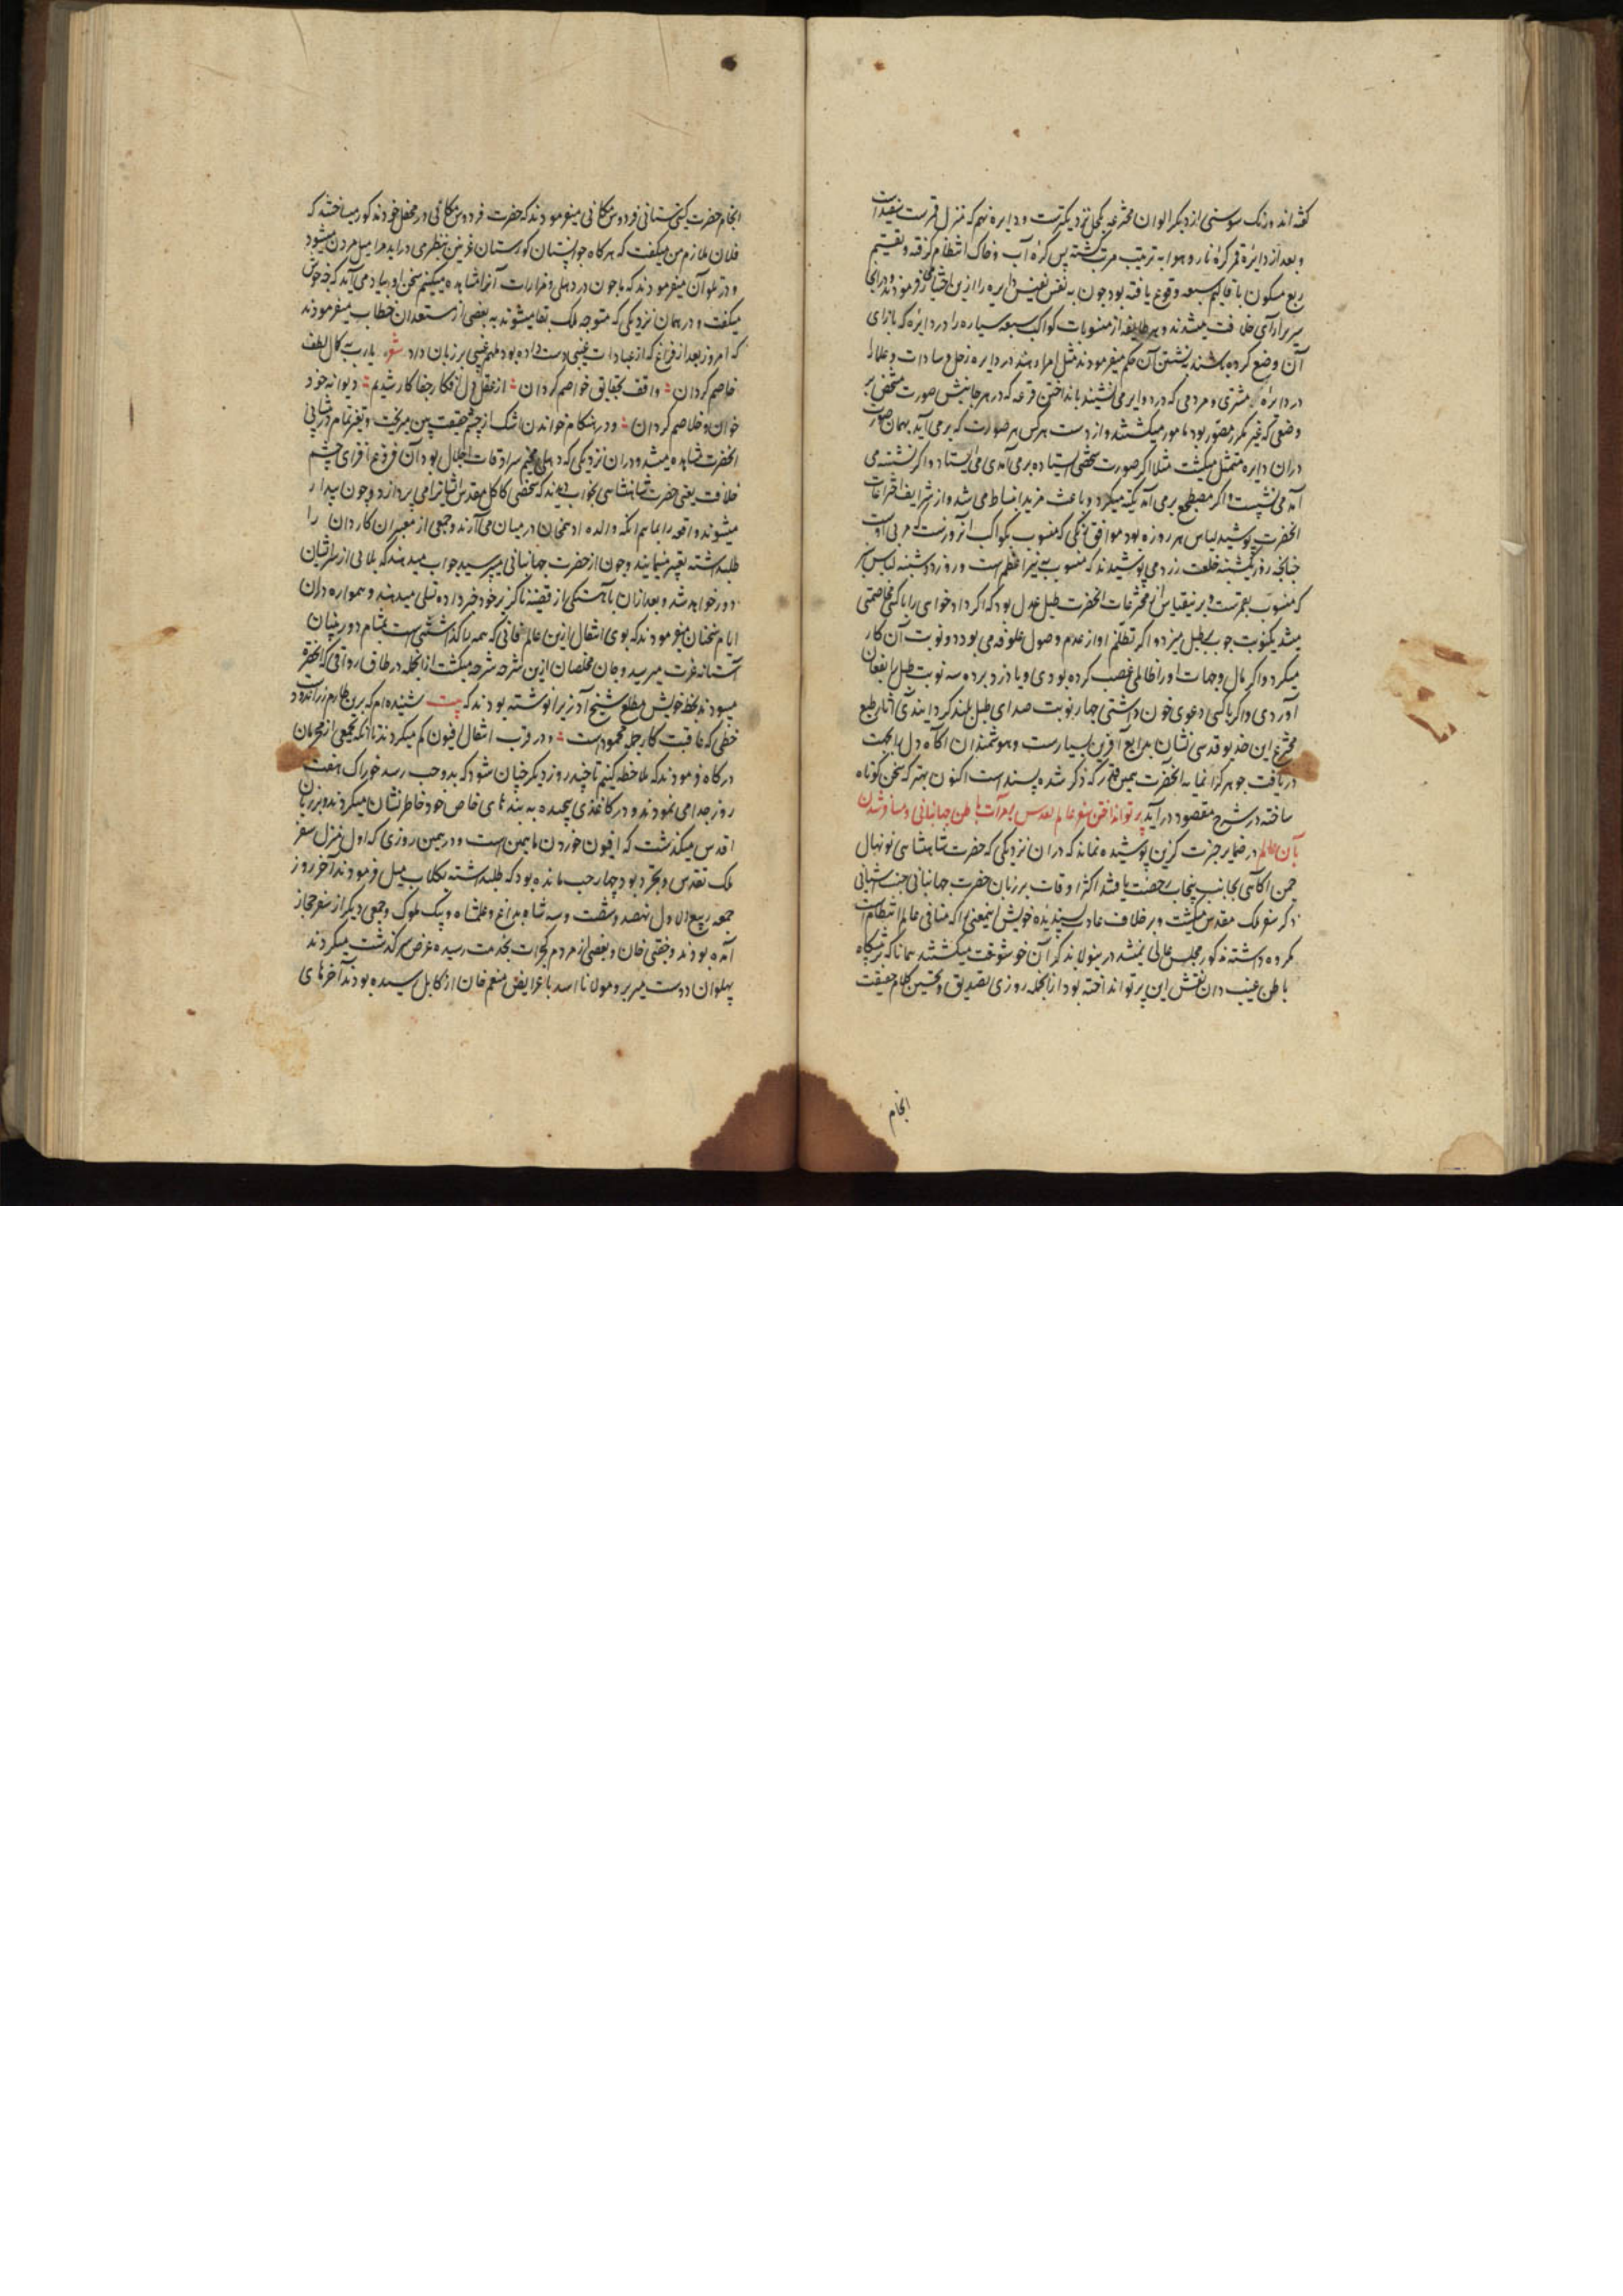 گفته اند ورنک سوسنی از دیگر الوان مخترعه بکحلی نزدیکترست و دایره نهم که منزل قمرست سفیدست
و بعد از دایرهٔ قمر کرهٔ نار و هوا به ترتیب مرتب گشته پس کرهٔ آب و خاک انتظام گرفته و تقسیم
ربع مسکون باقالیم سبعه وقوع یافته بود چون به نفس نفیس دایره را ازین اختیار فرمودند و درانجا
سریرآرای خلافت میشدند و هر طایفه از منسوبات کواکب سبعه سیاره را در دایره که بازای
آن وضع کرده باشند نشستن آن حکم میفرمودند مثل امراء هند در دایره زحل و سادات و علما
در دایرهٔ مشتری و مردمی که در دوایر می نشینند بانداختن قرعه که در هر جانبش صورت شخصی بر
وضعی که غیر مکرر مصور بود مامور میگشتند و از دست هرکس هر صورت که بر می آید بهمان صورت
دران دایره متمثل میگشت مثلا اگر صورت شخصی استاده برمی آمدی می ایستاد و اگر نشسته می
آمد می نشست و اگر مضطجع برمی آمد تکیه میکرد و باعث مزید انبساط می شد و از شرایف اختراعات
انحضرت پوشید لباس هر روزه بود موافق رنکی که منسوب بکواکب آنروزست که مربی اوست
چنانچه روز یکشنبه خلعت زرد می پوشیدند که منسوب به نیر اعظم است و روز دوشنبه لباس سبز
که منسوب بقمرست و برینقیاس از مخترعات انحضرت طبل عدل بود که اگر دادخواهی را با کسی مخاصمتی
میشد یکنوبت چوب بطبل میزد و اگر تظلم او از عدم وصول علوفه می بود دو نوبت آن کار
میکرد و اگر مال و جهات او را ظالمی غصب کرده بودی و یا دزد برده سه نوبت طبل را بفغان
آوردی و اگر با کسی دعوی خون داشتی چهار نوبت صدای طبل بلند گردانیدی آثار طبع
مخترع این خدیو قدسی نشان بدایع آفرین بسیارست و هوشمندان آگاه دل را بجهت
دریافت جوهر گرانمایه انحضرت همین قدر که ذکر شده پسندست اکنون بهتر که سخن کوتاه
ساخته در شرح مقصود درآید پرتو انداختن سفر عالم تقدس بمرآت باطن جهانبانی و مسافر شدن
بآن عالم در ضمایر حیرت گزین پوشیده نماند که دران نزدیکی که حضرت شاهنشاهی نونهال
چمن آگاهی بجانب پنجاب رخصت یافتند اکثر اوقات بر زبان حضرت جهانبانی جنت آشیانی
ذکر سفر ملک مقدس میگشت و برخلاف عادت پسندیدهٔ خویش اینمعنی را که منافی عالم انتظامست
مکروه داشته مذکور مجلس عالی نمیشد درینولا بذکر آن خوشوقت میگشتند همانا که بر پیشگاه
باطن غیب دان نقش این پرتو انداخته بود از انجمله روزی تصدیق و تحسین کلام حقیقت
انجام
انجام حضرت گیتی ستانی فردوس مکانی میفرمودند که حضرت فردوس مکانی در محفل خود مذکور میساختند که
فلان ملازم من میگفت که هرگاه خوابستان گورستان غزنین بنظر می درآید مرا میل مردن میشود
و در تلو آن میفرمودند که ما چون در دهلی و مزارات آنرا مشاهده میکنیم سخن او بیاد می آید که چه خوش
میگفت و در همان نزدیکی که متوجه ملک بقا میشوند به بعضی از مستعدان خطاب میفرمودند
که امروز بعد از فراغ که از عبادات غیبی دست داده بود ملهم غیبی بر زبان داد شعر یا رب به کمال لطف
خاصم گردان واقف بحقایق خواصم گردان از عقل دل افکار جفاکار شدیم دیوانه خود
خوان و خلاصم گردان و در هنگام خواندن اشک از چشم حقیقت بین میریخت و تغیر تمام در پیشانی
انحضرت مشاهده میشد و دران نزدیکی که دهلی مخیم سرادقات اجلال بود آن فروغ افزای چشم
خلافت یعنی حضرت شاهنشاهی بخواب دیدند که شخصی کاکل مقدس ایشانرا می پردازد و چون بیدار
میشوند واقعه را بماهم انگه والده ادهمخان در میان می آرند و جمعی از معبران کاردان را
طلبداشته تعبیر مینمایند و چون از حضرت جهانبانی میپرسید جواب میدهند که بلائی از سر ایشان
دور خواهد شد و بعد ازان باهستگی از قضیهٔ ناگزیر خود خبر داده تسلی میدهند و همواره دران
ایام سخنان میفرمودند که بوی انتقال ازین عالم فانی که همه را گذاشتنی است بمشام دوربینان
آستانه عزت میرسید و جان مخلصان ازین شرحه شرحه میگشت از انجمله در طاق رواقی که انحضرة
میبودند بخط خویش مطلع شیخ آذری را نوشته بودند که بیت شنیده ام که برین طارم زراندود
خطی که عاقبت کار جمله محمودست و در قرب انتقال افیون کم میکردند تا انکه بجمعی از محرمان
درگاه فرمودند که ملاحظه کنیم تا چند روز دیگر چنان شود که بدو حب رسد خوراک هفت
روز جدا می نمودند و در کاغذی پیچیده به بندهای خاص خود خاطرنشان میکردند و بر زبان
اقدس میگذشت که افیون خوردن ما همین است و در همین روزی که اول منزل سفر
ملک تقدس و تجرد بود چهار حب مانده بود که طلبداشته بگلاب میل فرمودند آخر روز
جمعه ربیع الاول نهصد و شصت و سه شاه بداغ و عالمشاه و بیک ملوک و جمعی دیگر از سفر حجاز
آمده بودند و چغتی خان و بعضی از مردم گجرات بخدمت رسیده عرض سرگذشت میکردند
پهلوان دوست میر بر و مولانا اسد با عرایض منعم خان از کابل رسیده بودند آخرهای